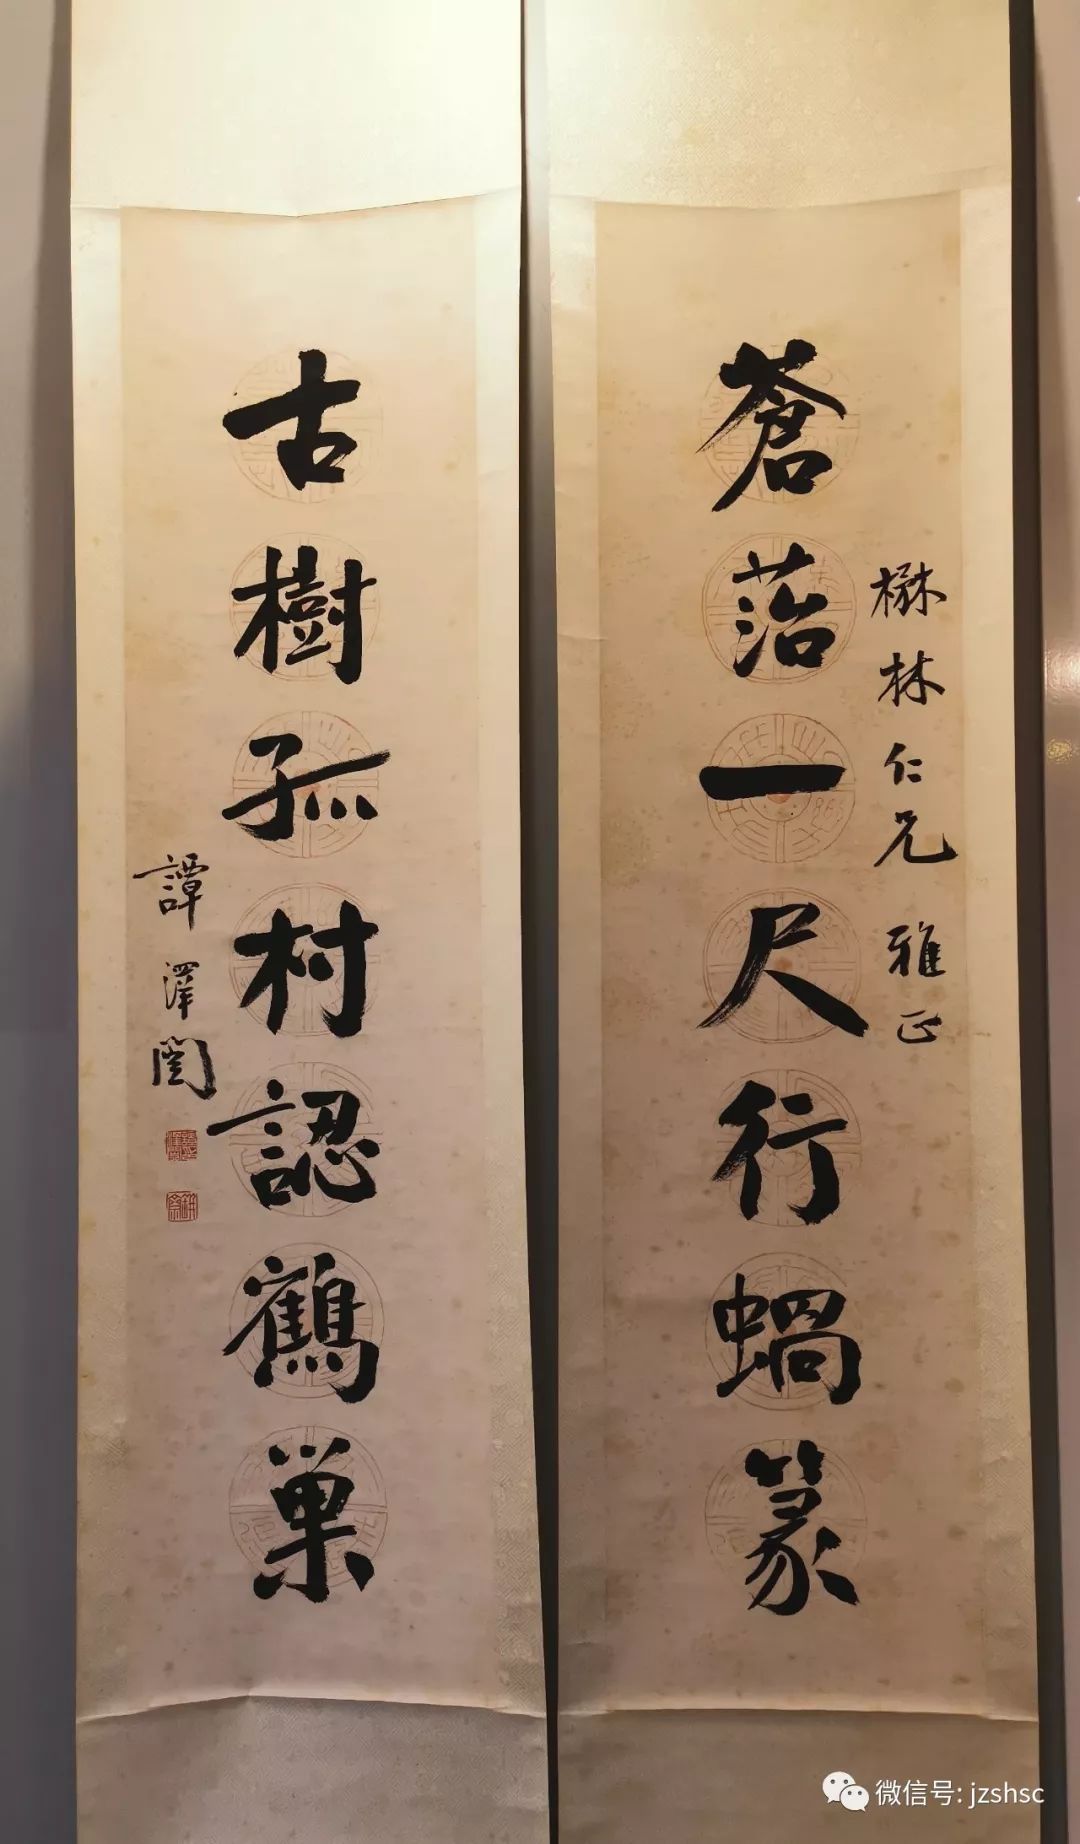 蒼菭一尺行蝸篆
楙林仁兄雅正
古樹孤村認鶴巢
譚澤闓
微信号: jzshsc